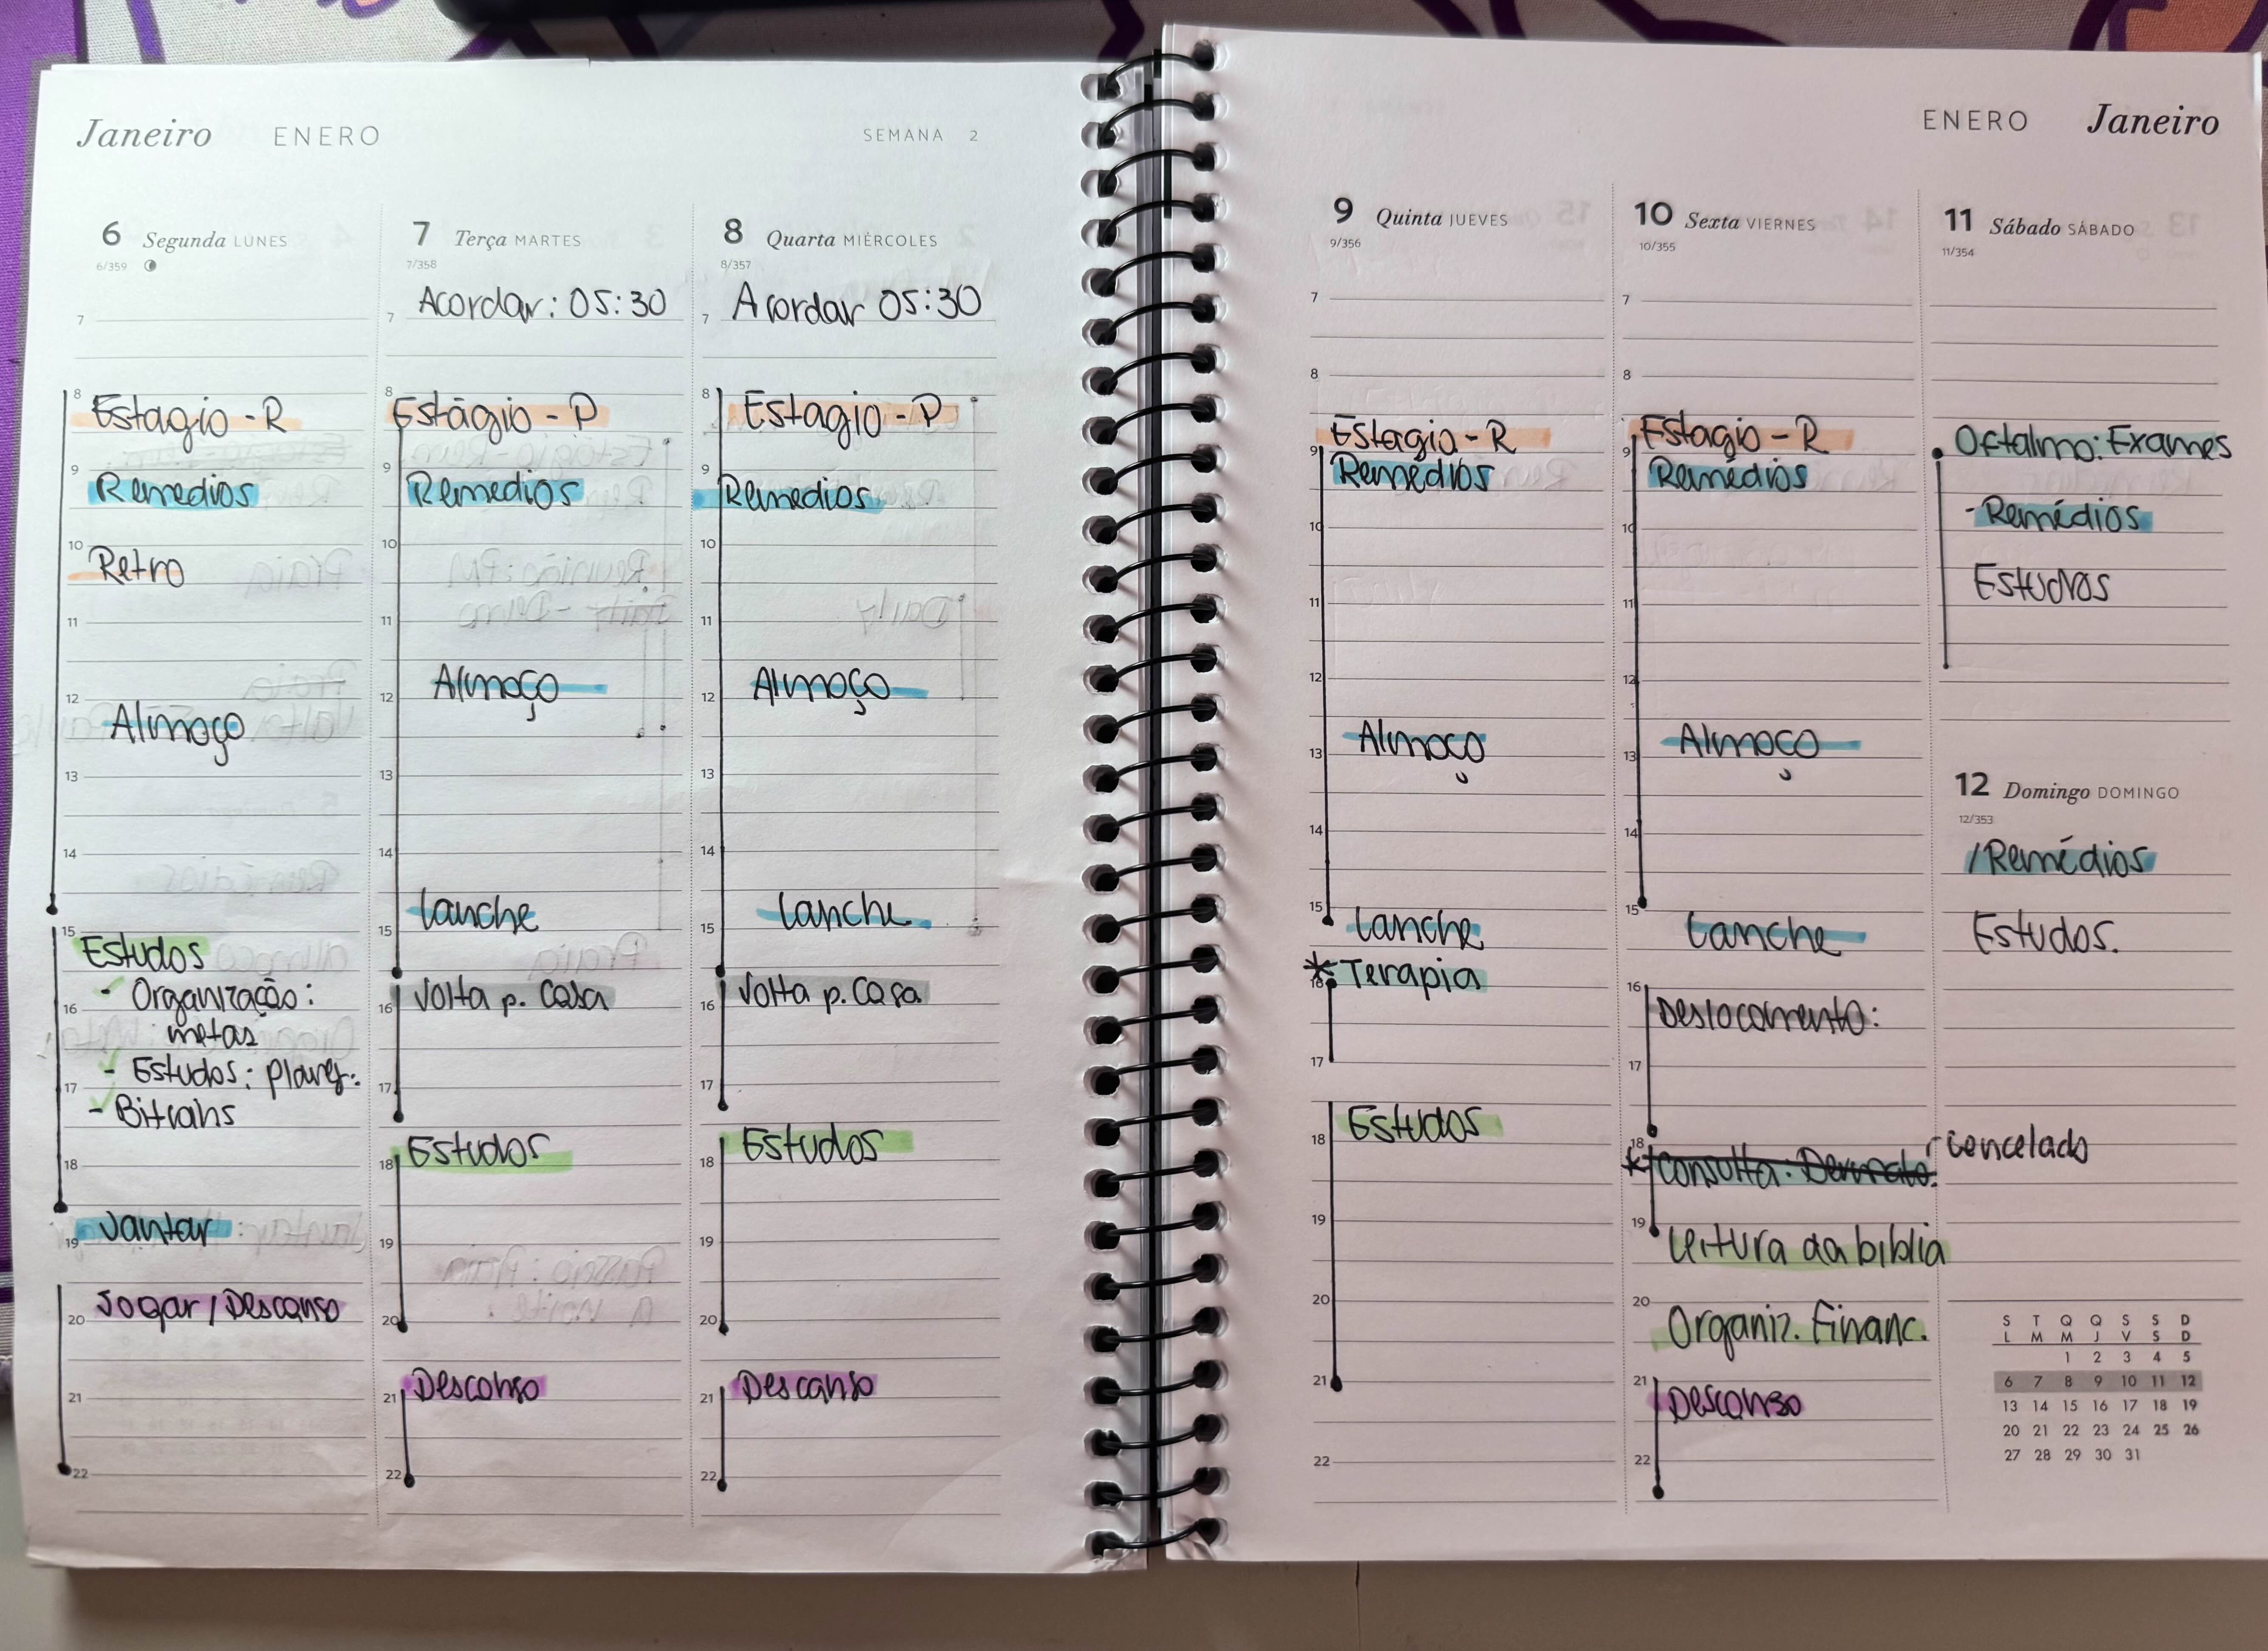 Janeiro ENERO SEMANA 2
6 Segunda LUNES
6/359
7
8
Estagio - R
9
Remedios
10
Retro
11
12
Almoço
13
14
15
Estudos
- Organização:
metas
16
- Estudos: planej.
17
- Bitrains
18
Jantar
19
Jogar / Descanso
20
21
22
7 Terça MARTES
7/358
Acordar: 05:30
7
8
Estágio - P
9
Remedios
10
11
Almoço
12
13
14
Lanche
15
Volta p. Casa
16
17
Estudos
18
19
20
Descanso
21
22
8 Quarta MIÉRCOLES
8/357
Acordar 05:30
7
8
Estagio - P
9
Remedios
10
11
Almoço
12
13
14
Lanche
15
Volta p. Casa
16
17
Estudos
18
19
20
Descanso
21
22
ENERO Janeiro
9 Quinta JUEVES
9/356
7
8
Estagio - R
9
Remédios
10
11
12
Almoço
13
14
15
Lanche
* Terapia
16
17
18
Estudos
19
20
21
22
10 Sexta VIERNES
10/355
7
8
Estagio - R
9
Remédios
10
11
12
Almoço
13
14
15
Lanche
16
Deslocamento:
17
18
* Consulta: Dermato. cancelado
19
Leitura da biblia
20
Organiz. Financ.
21
Descanso
22
11 Sábado SÁBADO
11/354
Oftalmo: Exames
- Remédios
Estudos
12 Domingo DOMINGO
12/353
/Remédios
Estudos.
S T Q Q S S D
L M M J V S D
1 2 3 4 5
6 7 8 9 10 11 12
13 14 15 16 17 18 19
20 21 22 23 24 25 26
27 28 29 30 31